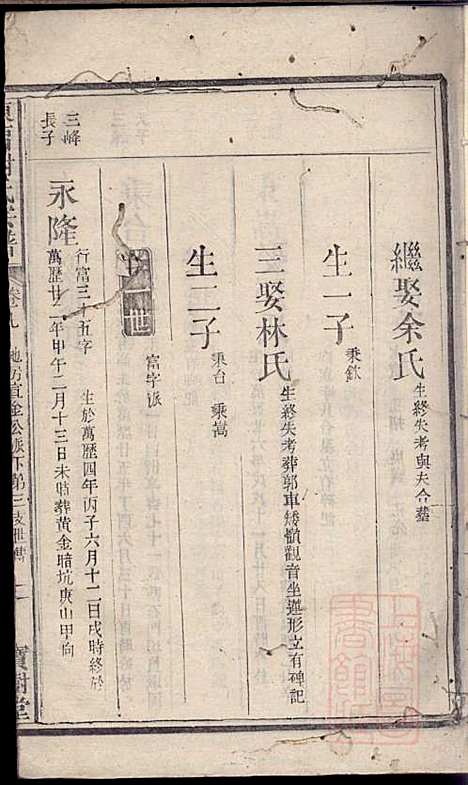 繼娶余氏 生終失考與夫合塟
生一子 秉欽
三娶林氏 生終失考葬郭車矮嶺觀音坐蓮形立有碑記
生二子 秉台 秉嵩
一世 富字派
三峰
長子
永隆 行富三十五字 生於萬歷四年丙子六月十二日戌時終於
萬歷廿二年甲午二月十三日未時葬黄金暗坑庚山甲向
氏宗譜 卷九 地房直金公派下第三 寶樹堂